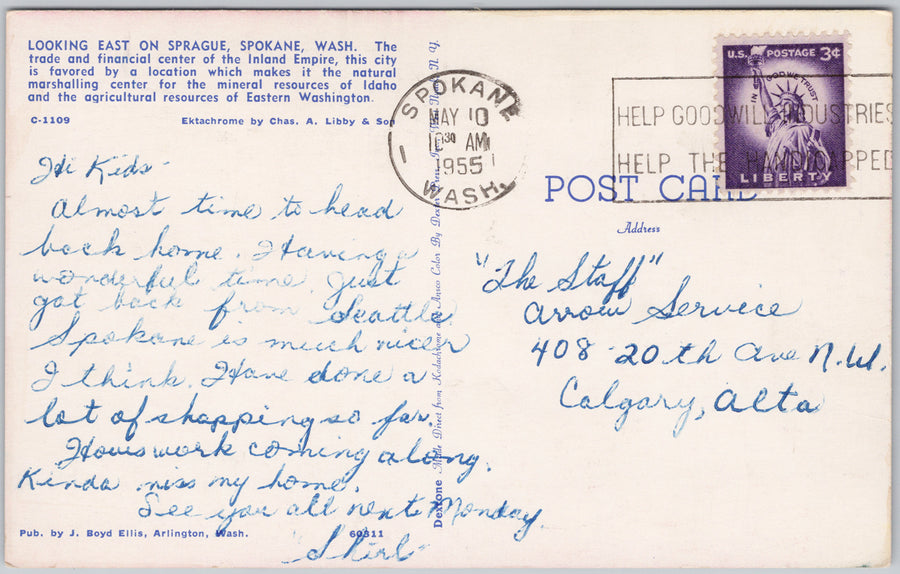 LOOKING EAST ON SPRAGUE, SPOKANE, WASH. The
trade and financial center of the Inland Empire, this city
is favored by a location which makes it the natural
marshalling center for the mineral resources of Idaho
and the agricultural resources of Eastern Washington.
C-1109 Ektachrome by Chas. A. Libby & Son
Hi Kids-
Almost time to head
back home. Having a
wonderful time. Just
got back from Seattle
Spokane is much nicer
I think. Have done a
lot of shopping so far.
Hows work coming along.
Kinda miss my home.
See you all next Monday.
"Shirl"
Pub. by J. Boyd Ellis, Arlington, Wash. 60311
Dextone Made Direct from Kodachrome and Ansco Color By Dexter N. Y.
SPOKANE
MAY 10
10 30 AM
1955
WASH.
1
1
U.S. POSTAGE 3¢
IN GOD WE TRUST
LIBERTY
HELP GOODWILL INDUSTRIES
HELP THE HANDICAPPED
POST CARD
Address
"The Staff"
Arrow Service
408-20th Ave N.W.
Calgary, Alta